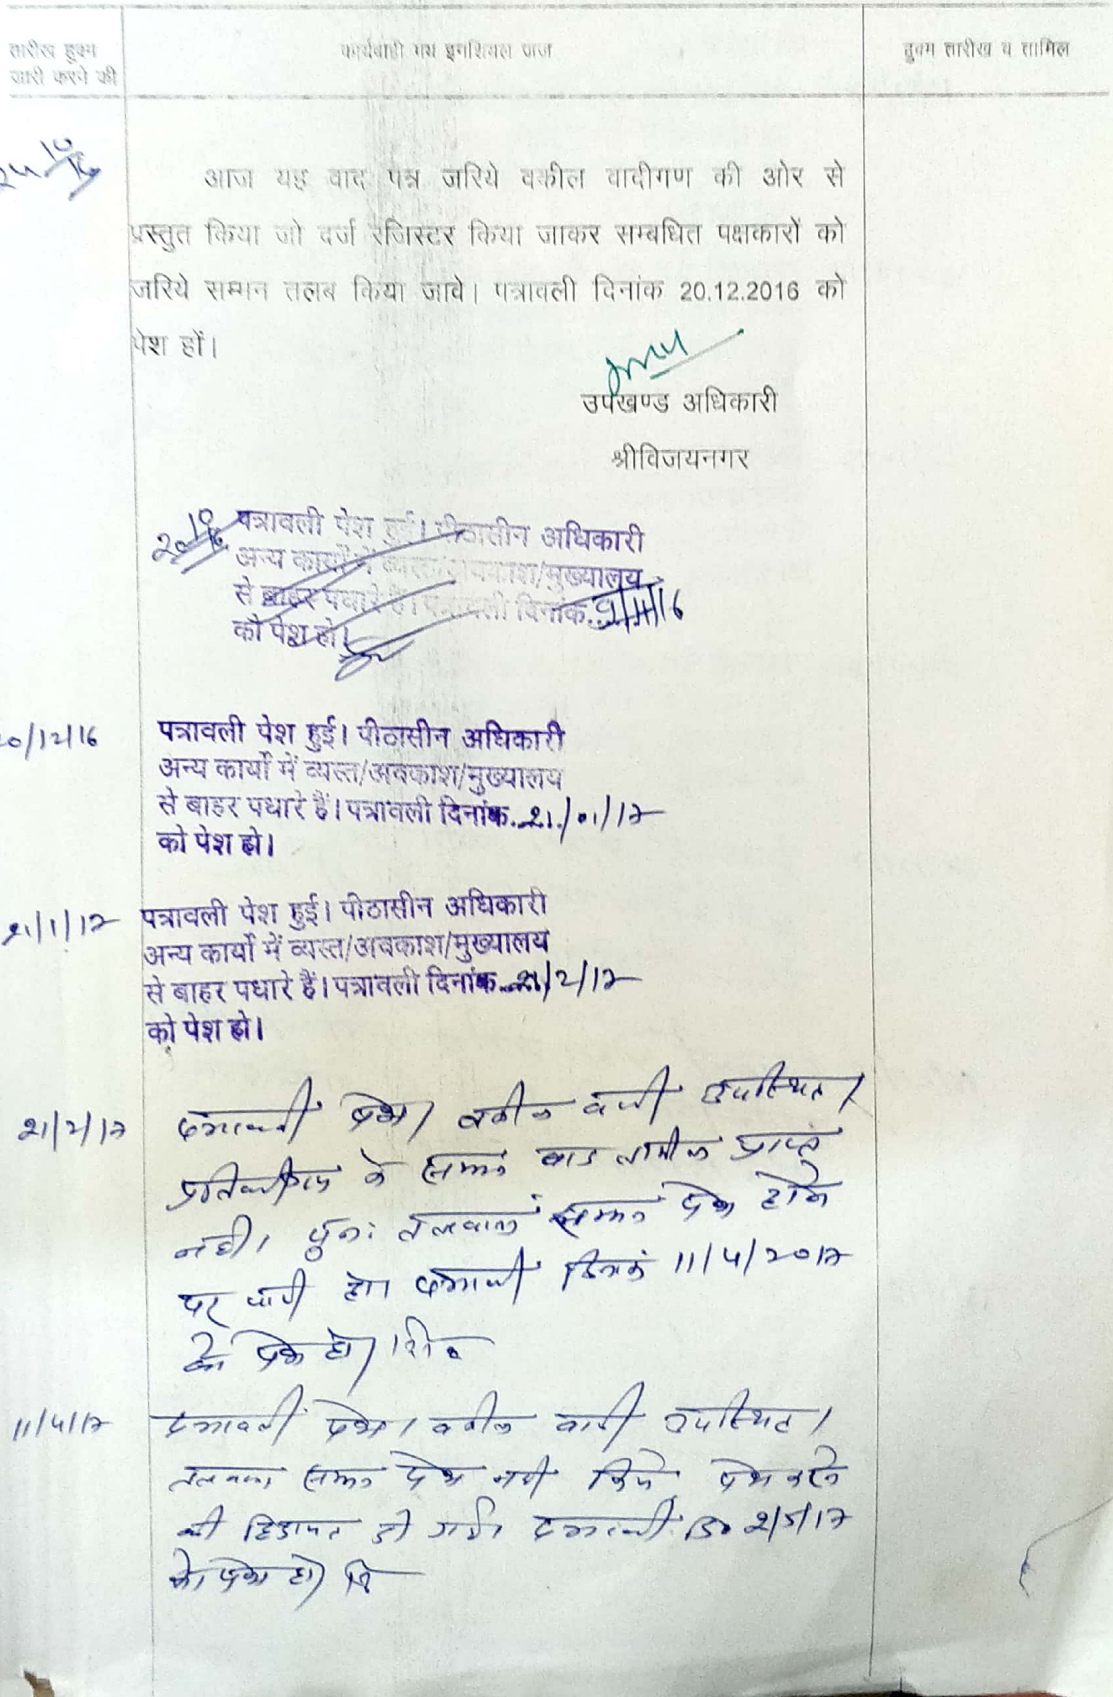 तारीख हुक्म
जारी करने की
कार्यवाही मय इनशियल जज
हुक्म तारीख व तामिल
आज यह वाद पत्र जरिये वकील वादीगण की ओर से
प्रस्तुत किया जो दर्ज रजिस्टर किया जाकर सम्बधित पक्षकारों को
जरिये सम्मन तलब किया जावे। पत्रावली दिनांक 20.12.2016 को
पेश हों।
उपखण्ड अधिकारी
श्रीविजयनगर
पत्रावली पेश हुई। पीठासीन अधिकारी
अन्य कार्यों में व्यस्त/अवकाश/मुख्यालय
से बाहर पधारे हैं। पत्रावली दिनांक
को पेश हो।
20/12/16
पत्रावली पेश हुई। पीठासीन अधिकारी
अन्य कार्यों में व्यस्त/अवकाश/मुख्यालय
से बाहर पधारे हैं। पत्रावली दिनांक 21/01/17
को पेश हो।
21/1/17
पत्रावली पेश हुई। पीठासीन अधिकारी
अन्य कार्यों में व्यस्त/अवकाश/मुख्यालय
से बाहर पधारे हैं। पत्रावली दिनांक 21/2/17
को पेश हो।
21/2/17
पत्रावली पेश। वकील वादी उपस्थित।
प्रतिवादीगण के सम्मन बाद तामील प्राप्त
नहीं। पुनः तलवाना सम्मन पेश होने
पर जारी हो। पत्रावली दिनांक 11/4/2017
को पेश हो।
11/4/17
पत्रावली पेश। वकील वादी उपस्थित।
तलवाना सम्मन पेश नहीं किये, पेश करने
की हिदायत दी गई। पत्रावली दि० 2/5/17
को पेश हो।